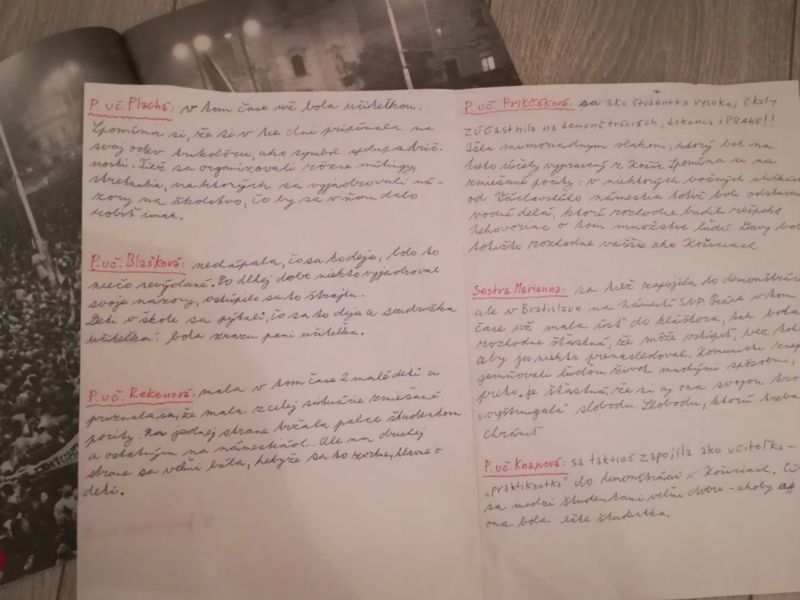 P. uč. Plachá: v tom čase už bola učiteľkou.
Spomína si, že si v tie dni pripínala na
svoj odev trikolóru, ako symbol spolupatrič-
nosti. Tiež sa organizovali rôzne mítingy,
stretnutia, na ktorých sa vyjadrovali ná-
zory na školstvo, čo by sa v ňom dalo
robiť inak.
P. uč. Blašková: nechápala, čo sa to deje, bolo to
niečo nevýdané. Po dlhej dobe niekto vyjadroval
svoje názory, vstúpilo sa to štrajku.
Deti v škole sa pýtali, čo sa to deje a súdružka
učiteľka bola zrazu pani učiteľka.
P. uč. Rekenová: mala v tom čase 2 malé deti a
priznala sa, že mala z celej situácie zmiešané
pocity. Na jednej strane držala palce študentom
a ostatným na námestiach. Ale na druhej
strane sa veľmi bála, kvôli
deti.
P. uč. Priščáková: sa ako študentka vysokej školy
zúčastnila na demonštráciách, dokonca v PRAHE!!
Išla mimoriadnym vlakom, ktorý bol na
tieto účely vypravený z Košíc. Spomína si na
zmiešané pocity: v niektorých bočných uličkách
od Václavského námestia totiž boli odstavené
vodné delá, ktoré rozhodne budili rešpekt.
Nehovoriac o tom množstve ľudí. Davy bol
totižto rozhodne väčšie ako Košiciach
Sestra Marianna: sa tiež zapojila do demonštrácií
ale v Bratislave na Námestí SNP. Práve v tom
čase už mala ísť do kláštora, tak bola
rozhodne šťastná, že môže vstúpiť, bez toho
aby ju niekto prenasledoval. Komunisti
ľuďom život mnohými spôsobmi,
preto je šťastná, že si aj ona svojou tro
"vyštrngala" slobodu. Slobodu, ktorú treba
chrániť
P. uč. Knapová: sa taktiež zapojila ako učiteľka-
"praktikantka" do demonštrácií v Košiciach.
sa medzi študentami veľmi dobre - akoby aj
ona bola ešte študentka.